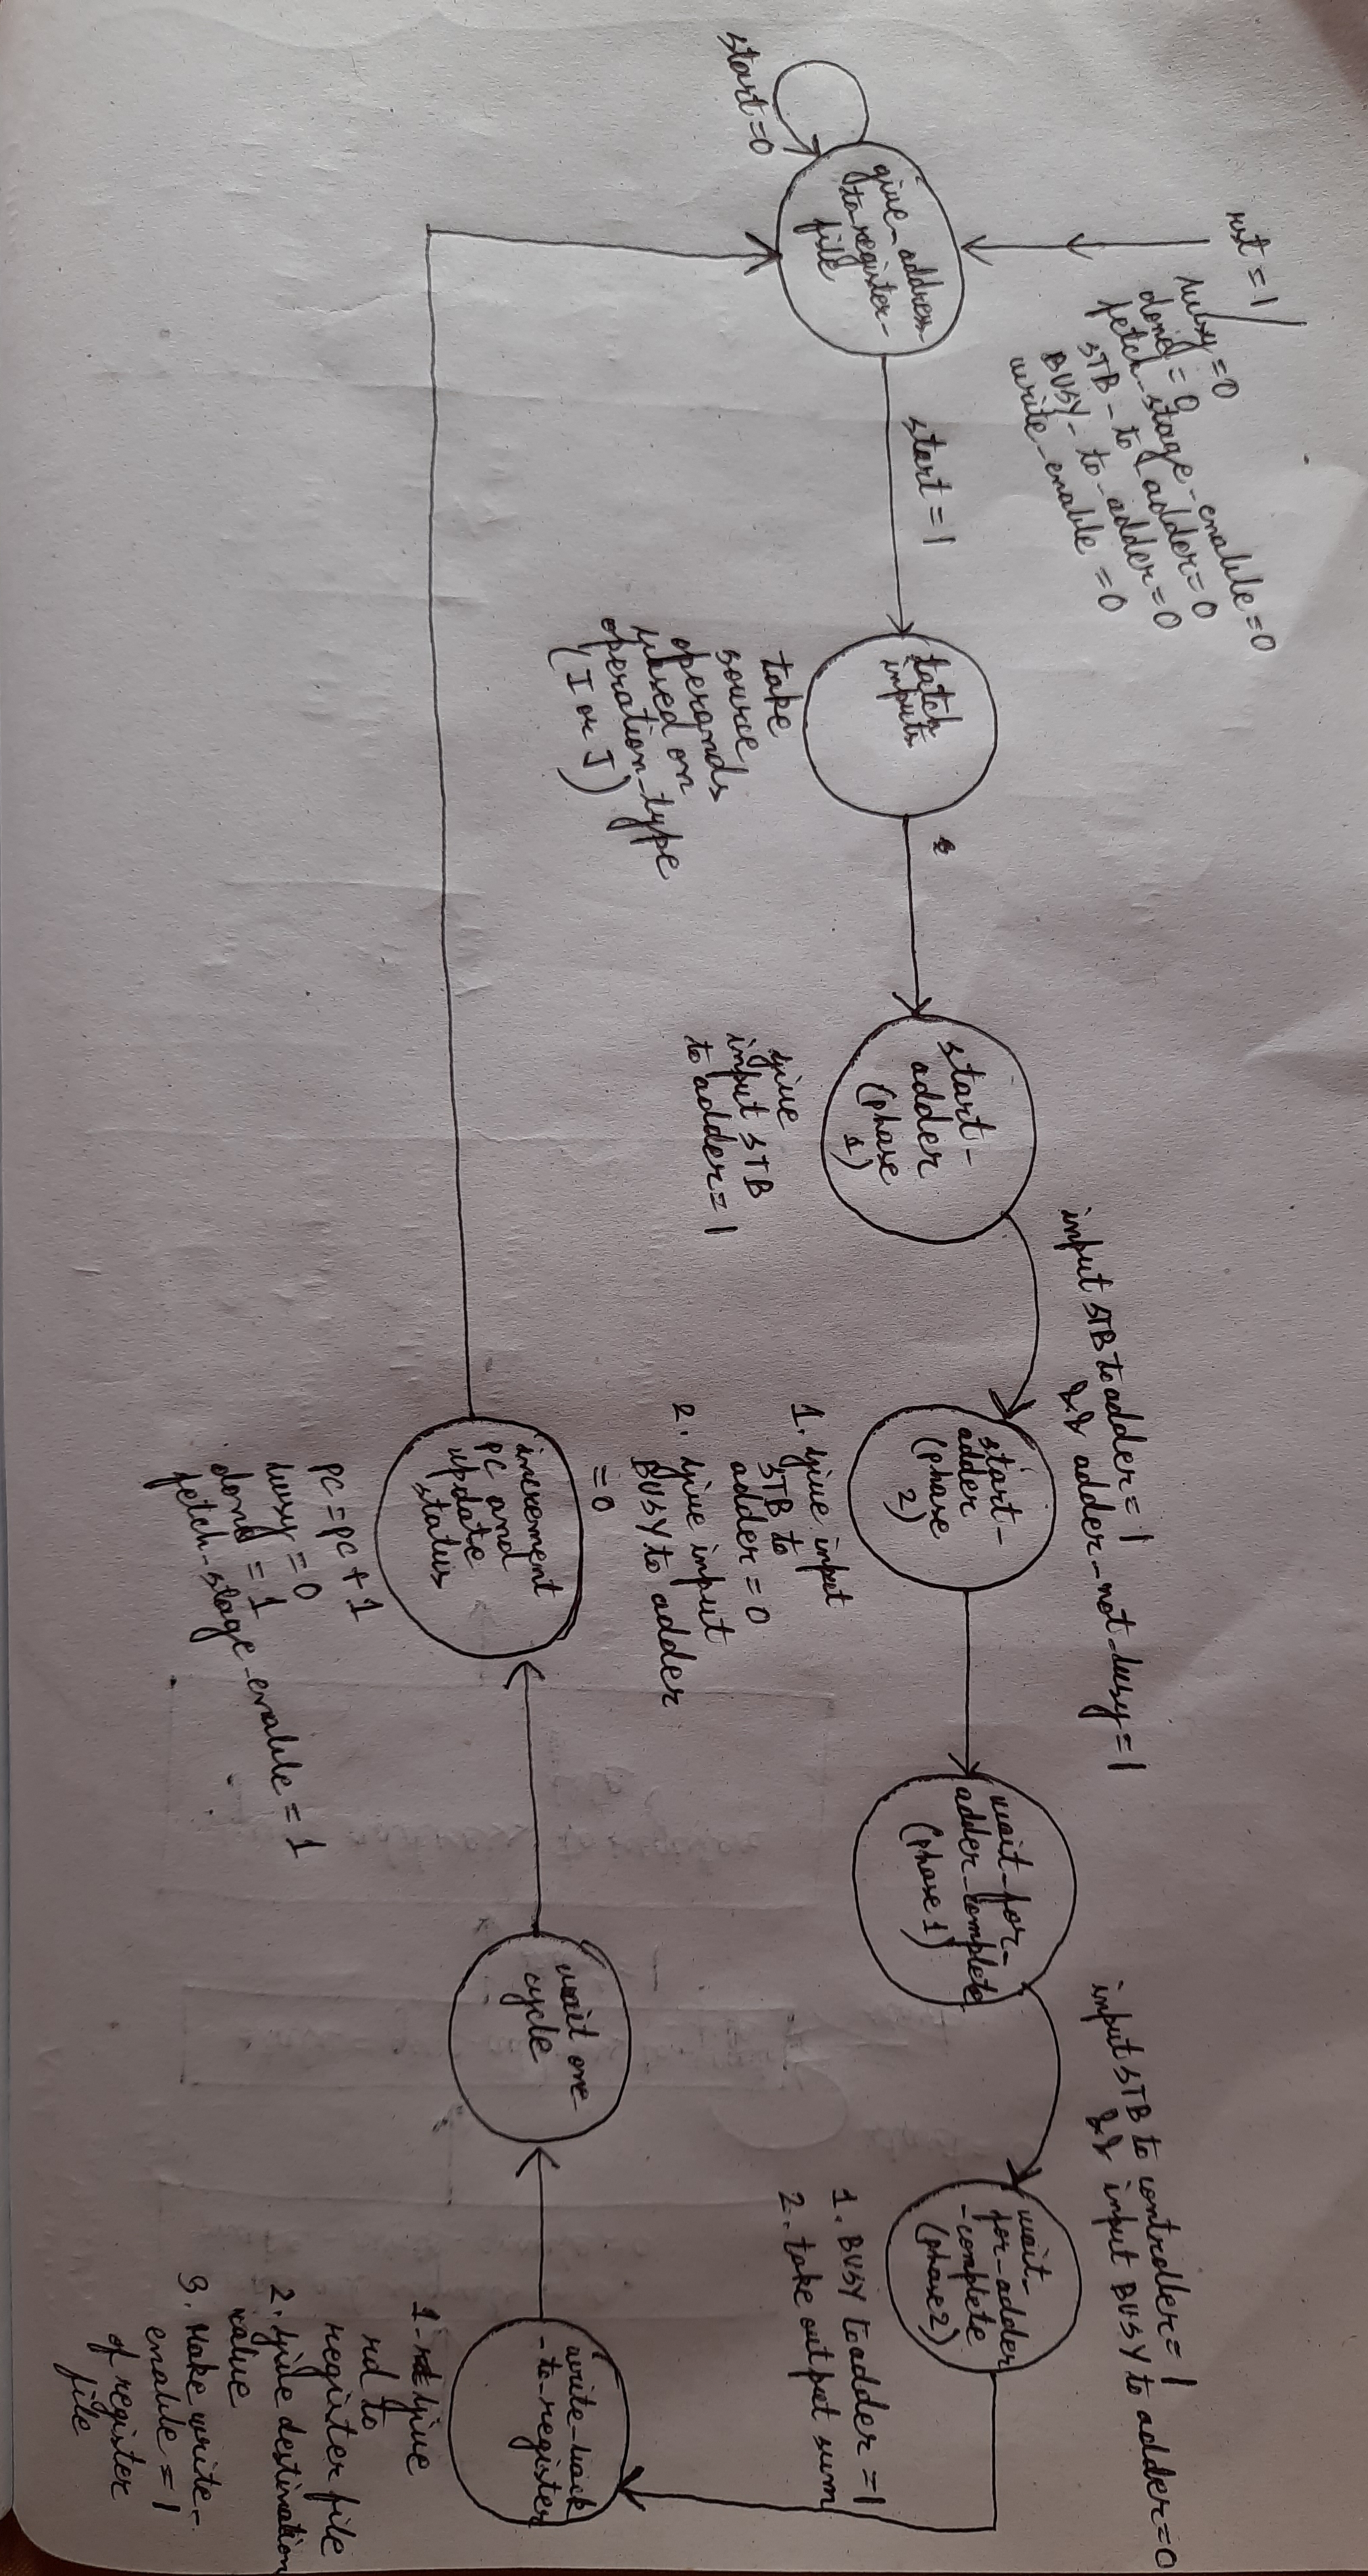 rst = 1/
busy = 0
done = 0
fetch_stage_enable = 0
STB_to_adder = 0
BUSY_to_adder = 0
write_enable = 0
give_address_
to_register_
file
start = 0
start = 1
latch
inputs
take
source
operands
based on
operation_type
(I or J)
start_
adder
(phase
1)
give
input STB
to adder = 1
input STB to adder = 1
&& adder_not_busy = 1
start_
adder
(phase
2)
1. give input
STB to
adder = 0
2. give input
BUSY to adder
= 0
wait_for_
adder_complete
(phase 1)
input STB to controller = 1
&& input BUSY to adder = 0
wait_
for_adder
_complete
(phase 2)
1. BUSY to adder = 1
2. take output sum
write_back
_to_register
1. give
rd to
register file
2. give destination
value
3. Make write_
enable = 1
of register
file
wait one
cycle
increment
PC and
update
status
PC = PC + 1
busy = 0
done = 1
fetch_stage_enable = 1